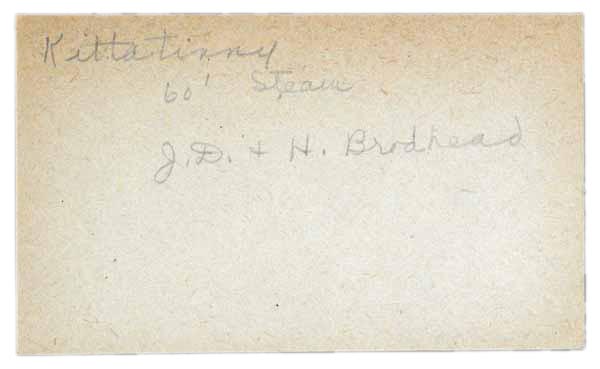 Kittatinny
60' Steam
J.D. + H. Brodhead